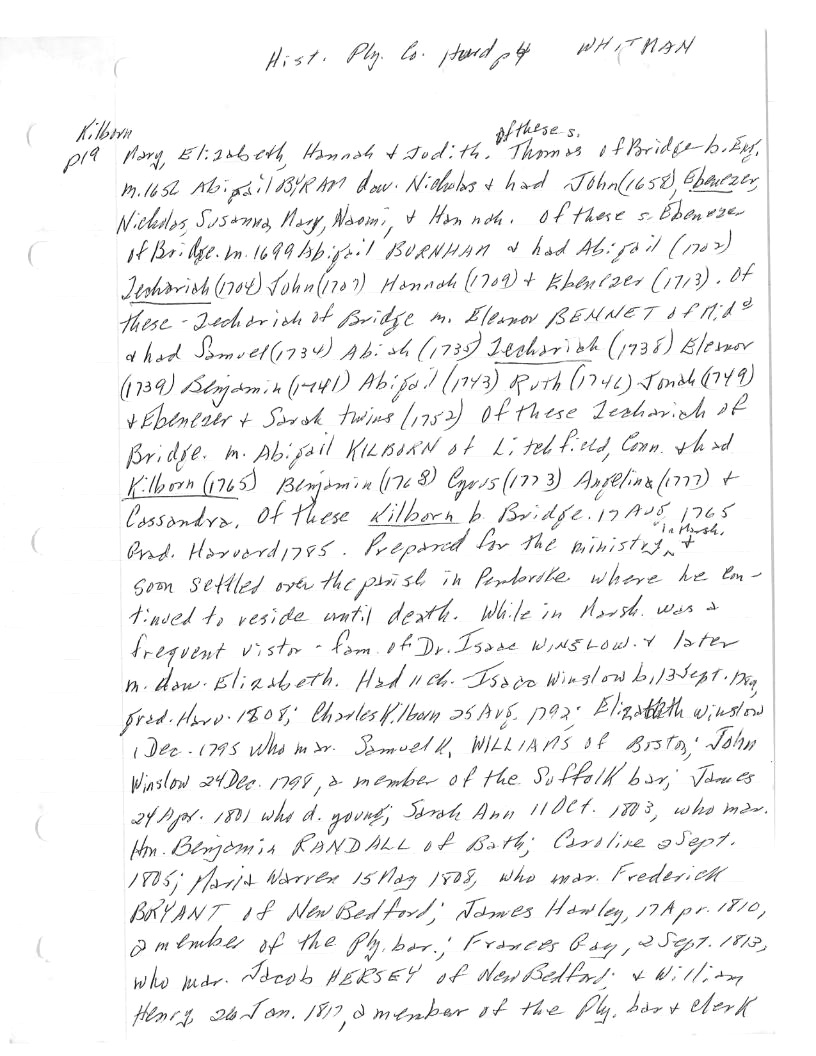 Hist. Ply. Co. Hurd p4 WHITMAN
Kilborn
p19
of these s.
Mary, Elizabeth, Hannah & Judith. Thomas of Bridge b. Eng.
m. 1656 Abigail BYRAM dau. Nicholas & had John (1658), Ebenezer,
Nicholas, Susanna, Mary, Naomi, & Hannah. Of these s. Ebenezer
of Bridge. m. 1699 Abigail BURNHAM & had Abigail (1702)
Zechariah (1704) John (1707) Hannah (1709) & Ebenezer (1713). Of
these - Zechariah of Bridge m. Eleanor BENNET of Mid^d
& had Samuel (1734) Abiah (1735) Zechariah (1738) Eleanor
(1739) Benjamin (1741) Abigail (1743) Ruth (1746) Jonah (1749)
& Ebenezer & Sarah twins (1752) Of these Zechariah of
Bridge. m. Abigail KILBORN of Litchfield, Conn. & had
Kilborn (1765) Benjamin (1768) Cyrus (1773) Angelina (1777) &
Cassandra. Of these Kilborn b. Bridge. 17 Aug 1765
in Marsh.
Grad. Harvard 1785. Prepared for the ministry &
soon settled over the parish in Pembroke where he con-
tinued to reside until death. While in Marsh. was a
frequent vistor - fam. of Dr. Isaac WINSLOW & later
m. dau. Elizabeth. Had 11 ch. Isaac Winslow b. 13 Sept. 1789,
grad. Harv. 1808; Charles Kilborn 25 Aug. 1792; Elizabeth Winslow
1 Dec. 1795 who mar. Samuel K. WILLIAMS of Boston; John
Winslow 24 Dec. 1798, a member of the Suffolk bar; James
24 Apr. 1801 who d. young; Sarah Ann 11 Oct. 1803, who mar.
Hon. Benjamin RANDALL of Bath; Caroline 2 Sept.
1805; Maria Warren 15 May 1808, who mar. Frederick
BRYANT of New Bedford; James Hawley, 17 Apr. 1810,
a member of the Ply. bar.; Frances Gay, 2 Sept. 1813,
who mar. Jacob HERSEY of New Bedford; & William
Henry, 26 Jan. 1817, a member of the Ply. bar & clerk